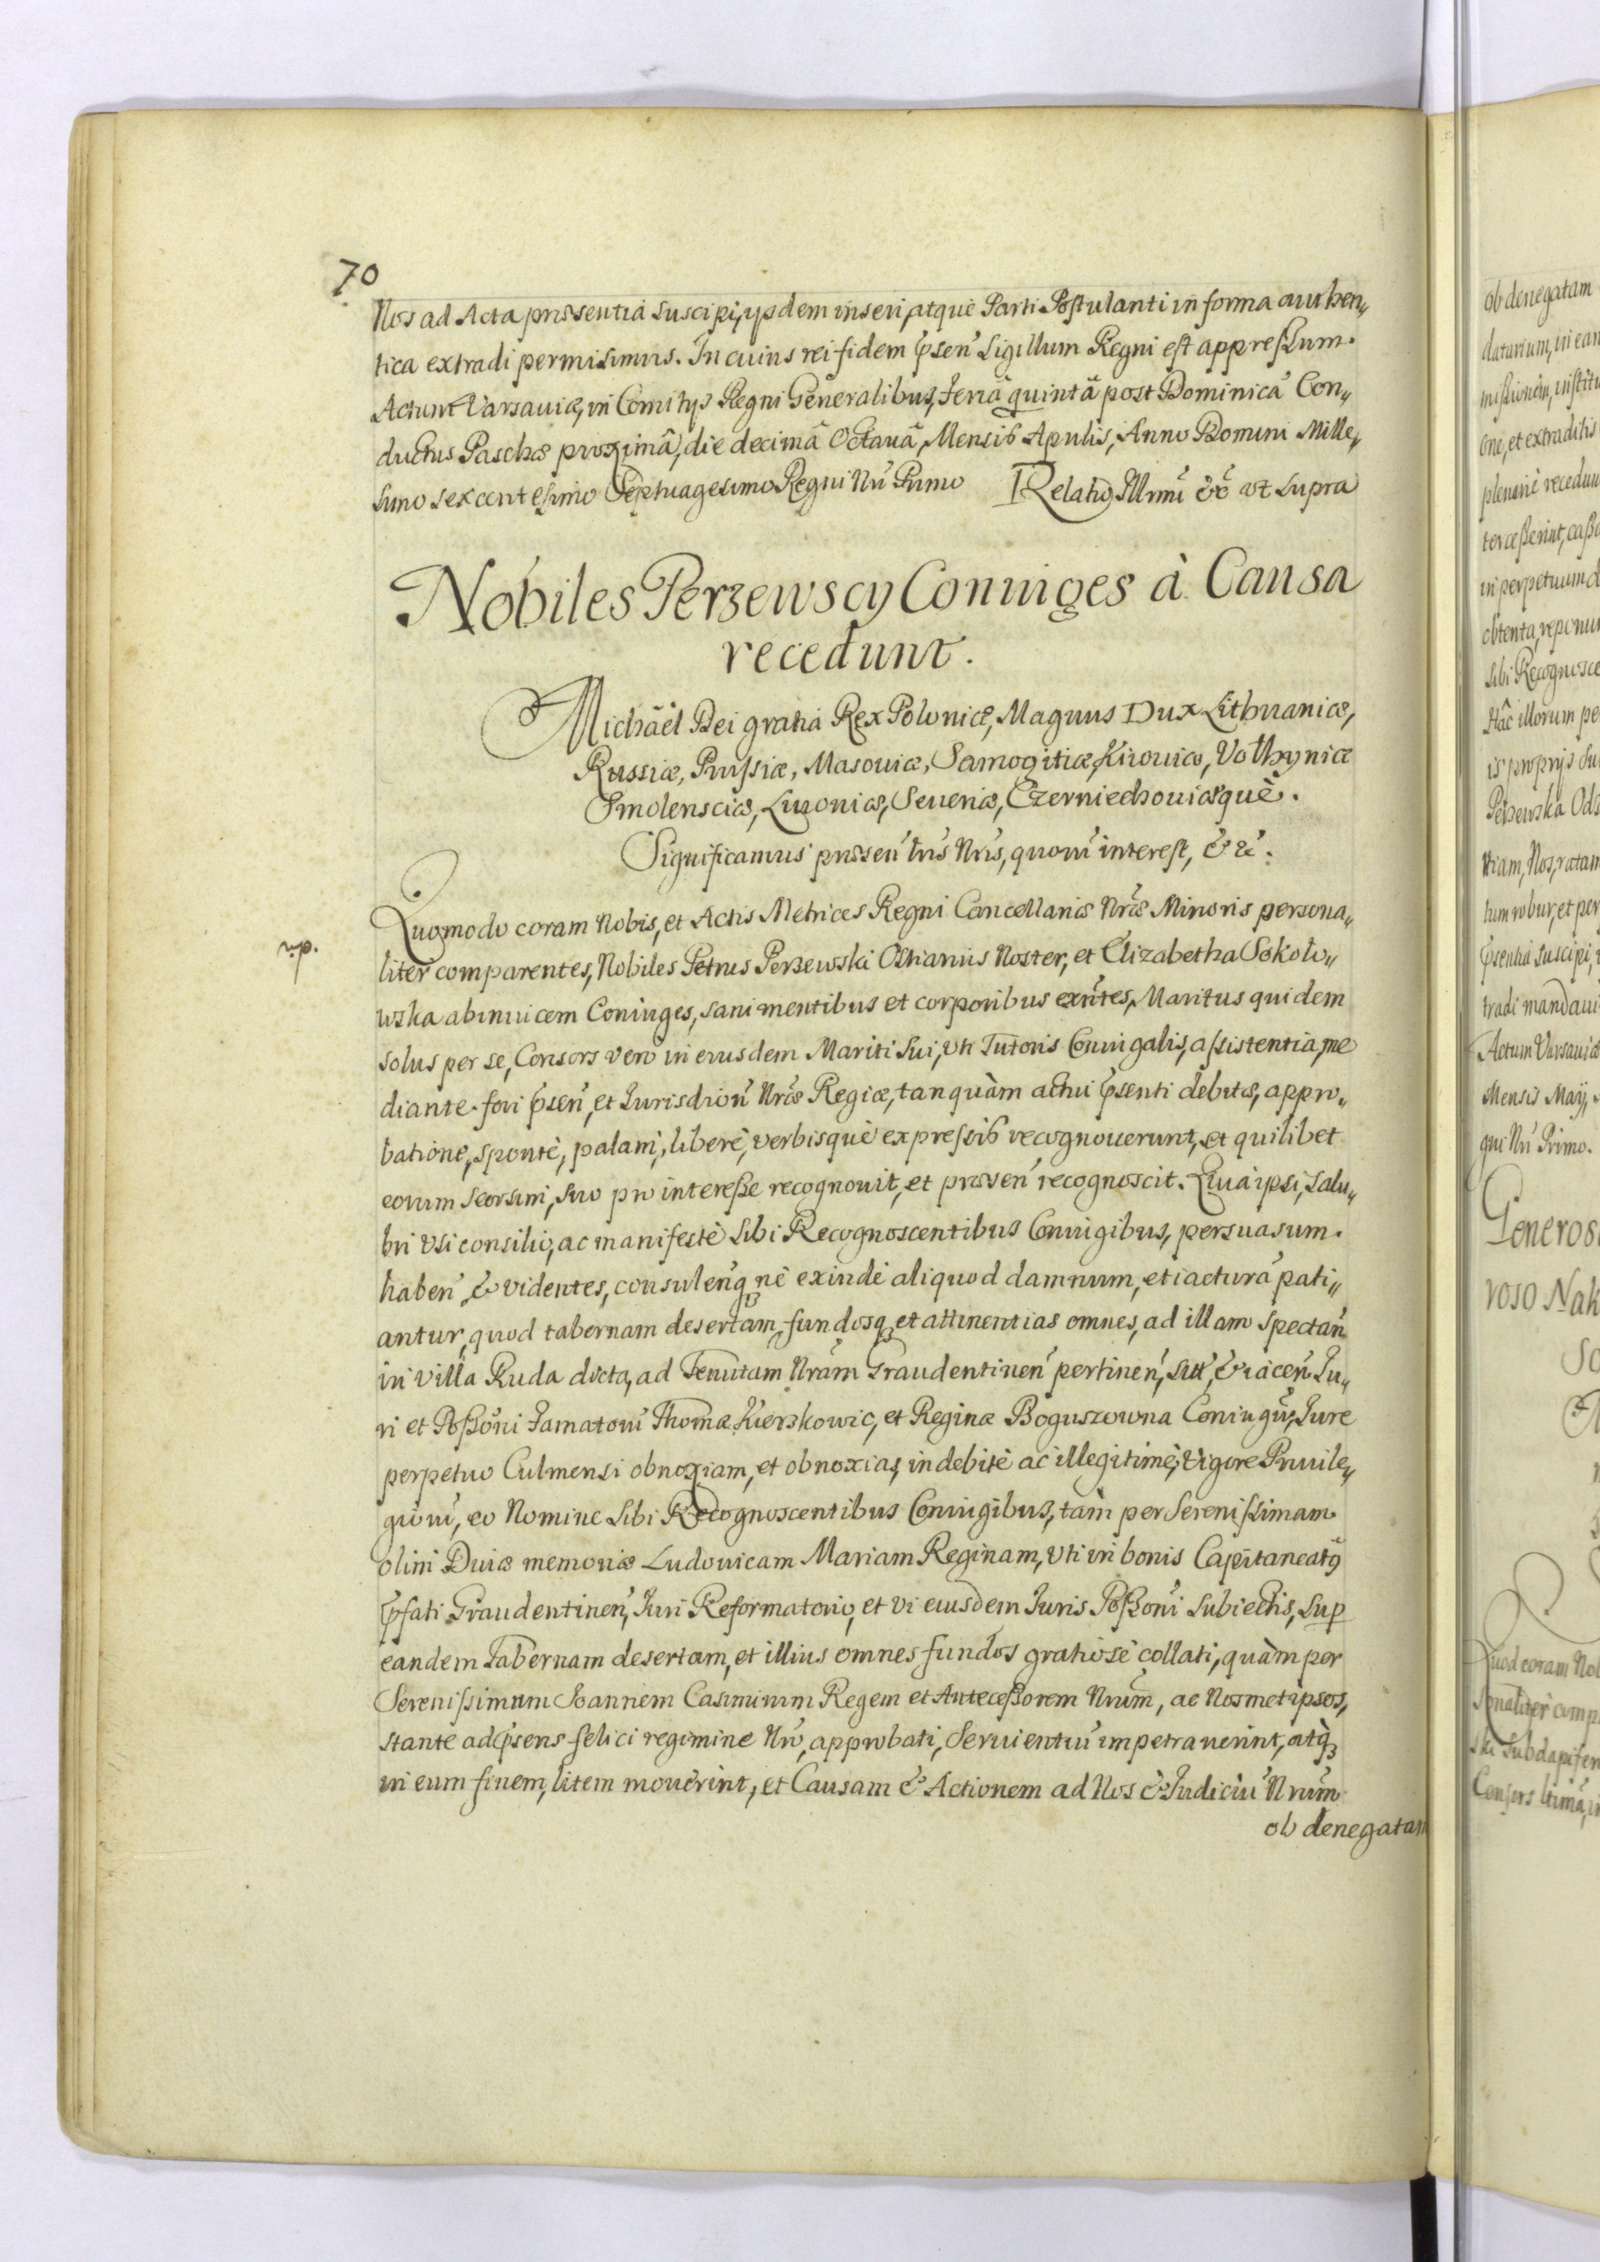 70
Nos ad Acta præsentia suscipi, ijsdem inseri, atquè Parti Postulanti in forma authen„
tica extradi permisimus. In cuius rei fidem p̃sen̄ Sigillum Regni est appressum.
Actum Varsauiæ, in Comitijs Regni Generalibus, feriâ quintâ post Dominicā Con„
ductus Paschæ proximâ, die decimâ Octauâ, Mensis Aprilis, Anno Domini Mille„
simo sexcentesimo Septuagesimo Regni Nr̄i Primo Relatio Illrmi &c̄ vt supra
Nobiles Perzewscy Coniuges à Causa
recedunt.
Michaël Dei gratia Rex Poloniæ, Magnus Dux Lithuaniæ,
Russiæ, Prussiæ, Masouiæ, Samogitiæ, Kiiouiæ, Volhyniæ
Smolensciæ, Liuoniæ, Seueriæ, Czerniechouiæquè.
Significamus præsen̄ Lr̄is Nr̄is, quorū interest, & c̄:
Quomodo coram Nobis, et Actis Metrices Regni Cancellariæ Nr̄æ Minoris persona„
rp.
liter comparentes, Nobiles Petrus Perzewski Ostiarius Noster, et Elizabetha Sokoło„
wska abinuicem Coniuges, sani mentibus et corporibus exn̄tes, Maritus quidem
solus per se, Consors verò in eiusdem Mariti sui, vti Tutoris Coniugalis, assistentia, me
diante fori p̃sen̄, et Iurisdiōn̄ Nr̄æ Regiæ, tanquàm actui p̃senti debitæ, appro„
batione, spontè, palam, liberè, verbisquè expressis recognouerunt, et quilibet
eorum seorsim, suo pro interesse recognouit, et præsen̄ recognoscit. Quia ipsi, salu„
bri vsi consilio, ac manifestè sibi Recognoscentibus Coniugibus, persuasum
haben̄ & videntes, consulen̄q₃ nè exindè aliquod damnum, et iacturā pati„
antur, quod tabernam desertam, fundosq₃ et attinentias omnes, ad illam spectan̄
in villa Ruda dicta, ad Tenutam Nr̄am Graudentinen̄ pertinen̄, sit̄, & iacen̄ Iu„
ri et Possōni famatorū Thomæ Kierzkowic, et Reginæ Boguszowna Coniugū, Iure
perpetuo Culmensi obnoxiam, et obnoxias, indebitè ac illegitimè, vigore Priuile„
giorū, eo Nomine sibi Recognoscentibus Coniugibus, tàm per Serenissimam
olim Diuæ memoriæ Ludouicam Mariam Reginam, vti in bonis Capitaneatꝰ
p̃fati Graudentinen̄, Iuri Reformatorio, et vi eiusdem Iuris Possōni subiectis, sup̱
eandem Tabernam desertam, et illius omnes fundos gratiosè collati, quàm per
Serenissimum Ioannem Casimirum Regem et Antecessorem Nrūm, ac Nosmetipsos,
stante ad p̃sens felici regimine Nr̄o, approbati, Seruientiū impetrauerint, atq̃₃
in eum finem, litem mouerint, et Causam & Actionem ad Nos & Iudiciū Nrūm
ob denegatam